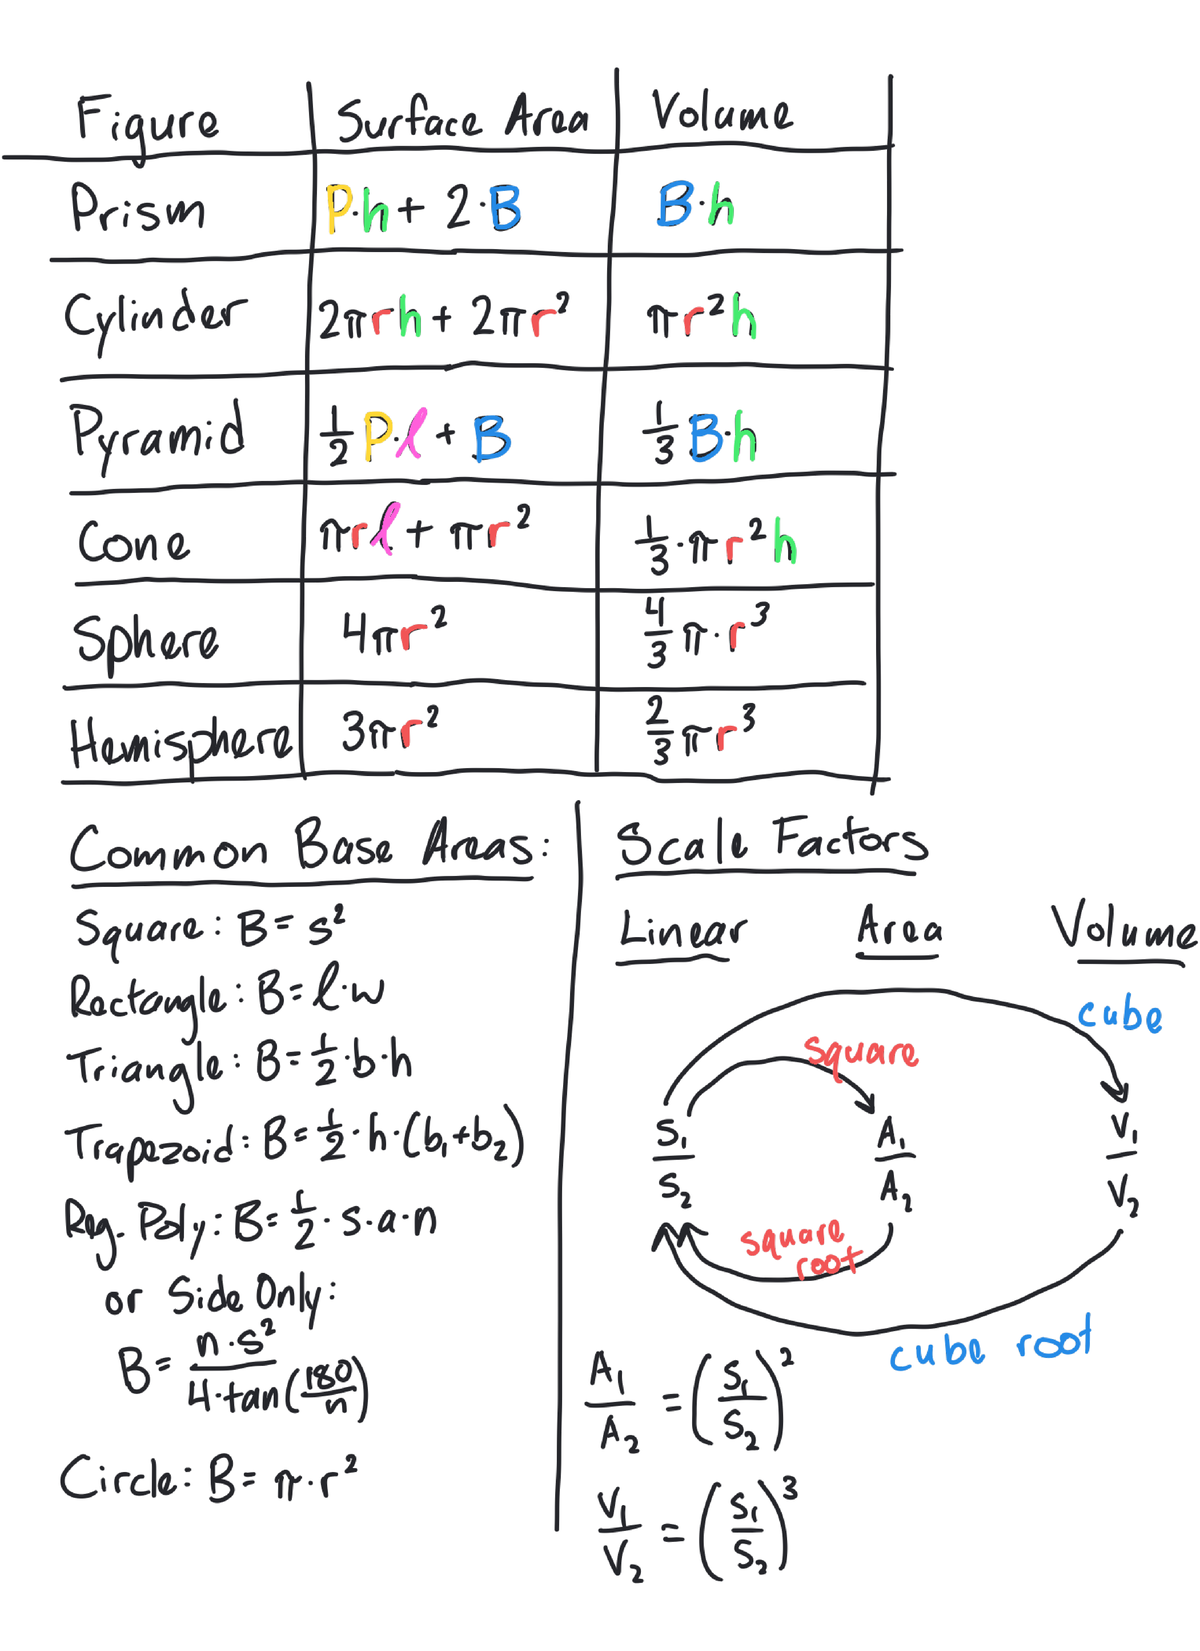 Figure Surface Area Volume
Prism P·h + 2·B B·h
Cylinder 2πrh + 2πr² πr²h
Pyramid 1/2 P·l + B 1/3 B·h
Cone πrl + πr² 1/3·πr²h
Sphere 4πr² 4/3 π·r³
Hemisphere 3πr² 2/3 πr³
Common Base Areas:
Square: B = s²
Rectangle: B = l·w
Triangle: B = 1/2·b·h
Trapezoid: B = 1/2·h·(b₁+b₂)
Reg. Poly: B = 1/2·s·a·n
or Side Only:
B = n·s² / 4·tan(180/n)
Circle: B = π·r²
Scale Factors
Linear Area Volume
cube
square
S₁/S₂ A₁/A₂ V₁/V₂
square
root
cube root
A₁/A₂ = (S₁/S₂)²
V₁/V₂ = (S₁/S₂)³